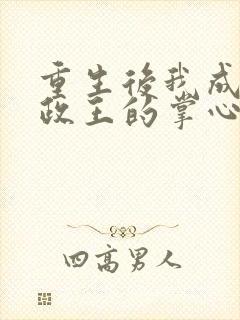 重生後我成
政王的掌心
四高男人